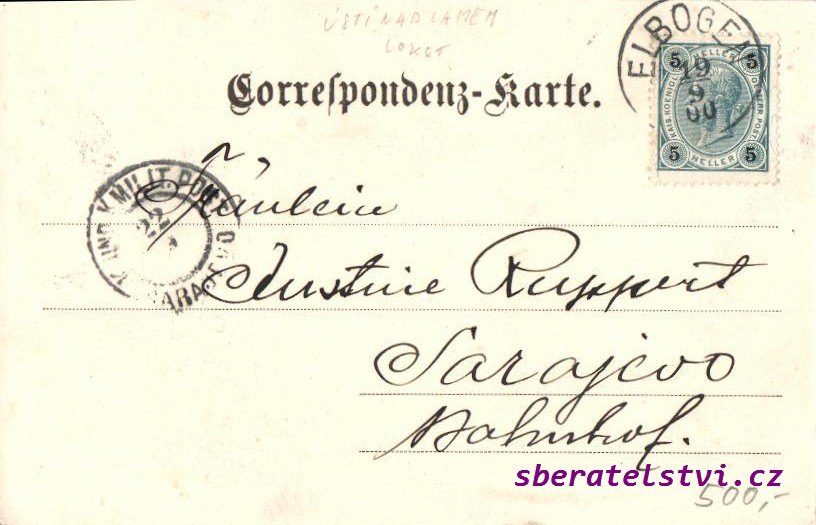 ÚSTÍ NAD LABEM
LOKET
ELBOGEN
19
9
00
5 HELLER 5
KAIS. KOENIGL. OESTERR. POST.
5 HELLER 5
Correſpondenz-Karte.
K. UND K. MILIT. POST
22
SARAJEVO
Fräulein
Justine Ruppert
Sarajevo
Bahnhof.
sberatelstvi.cz
500,-